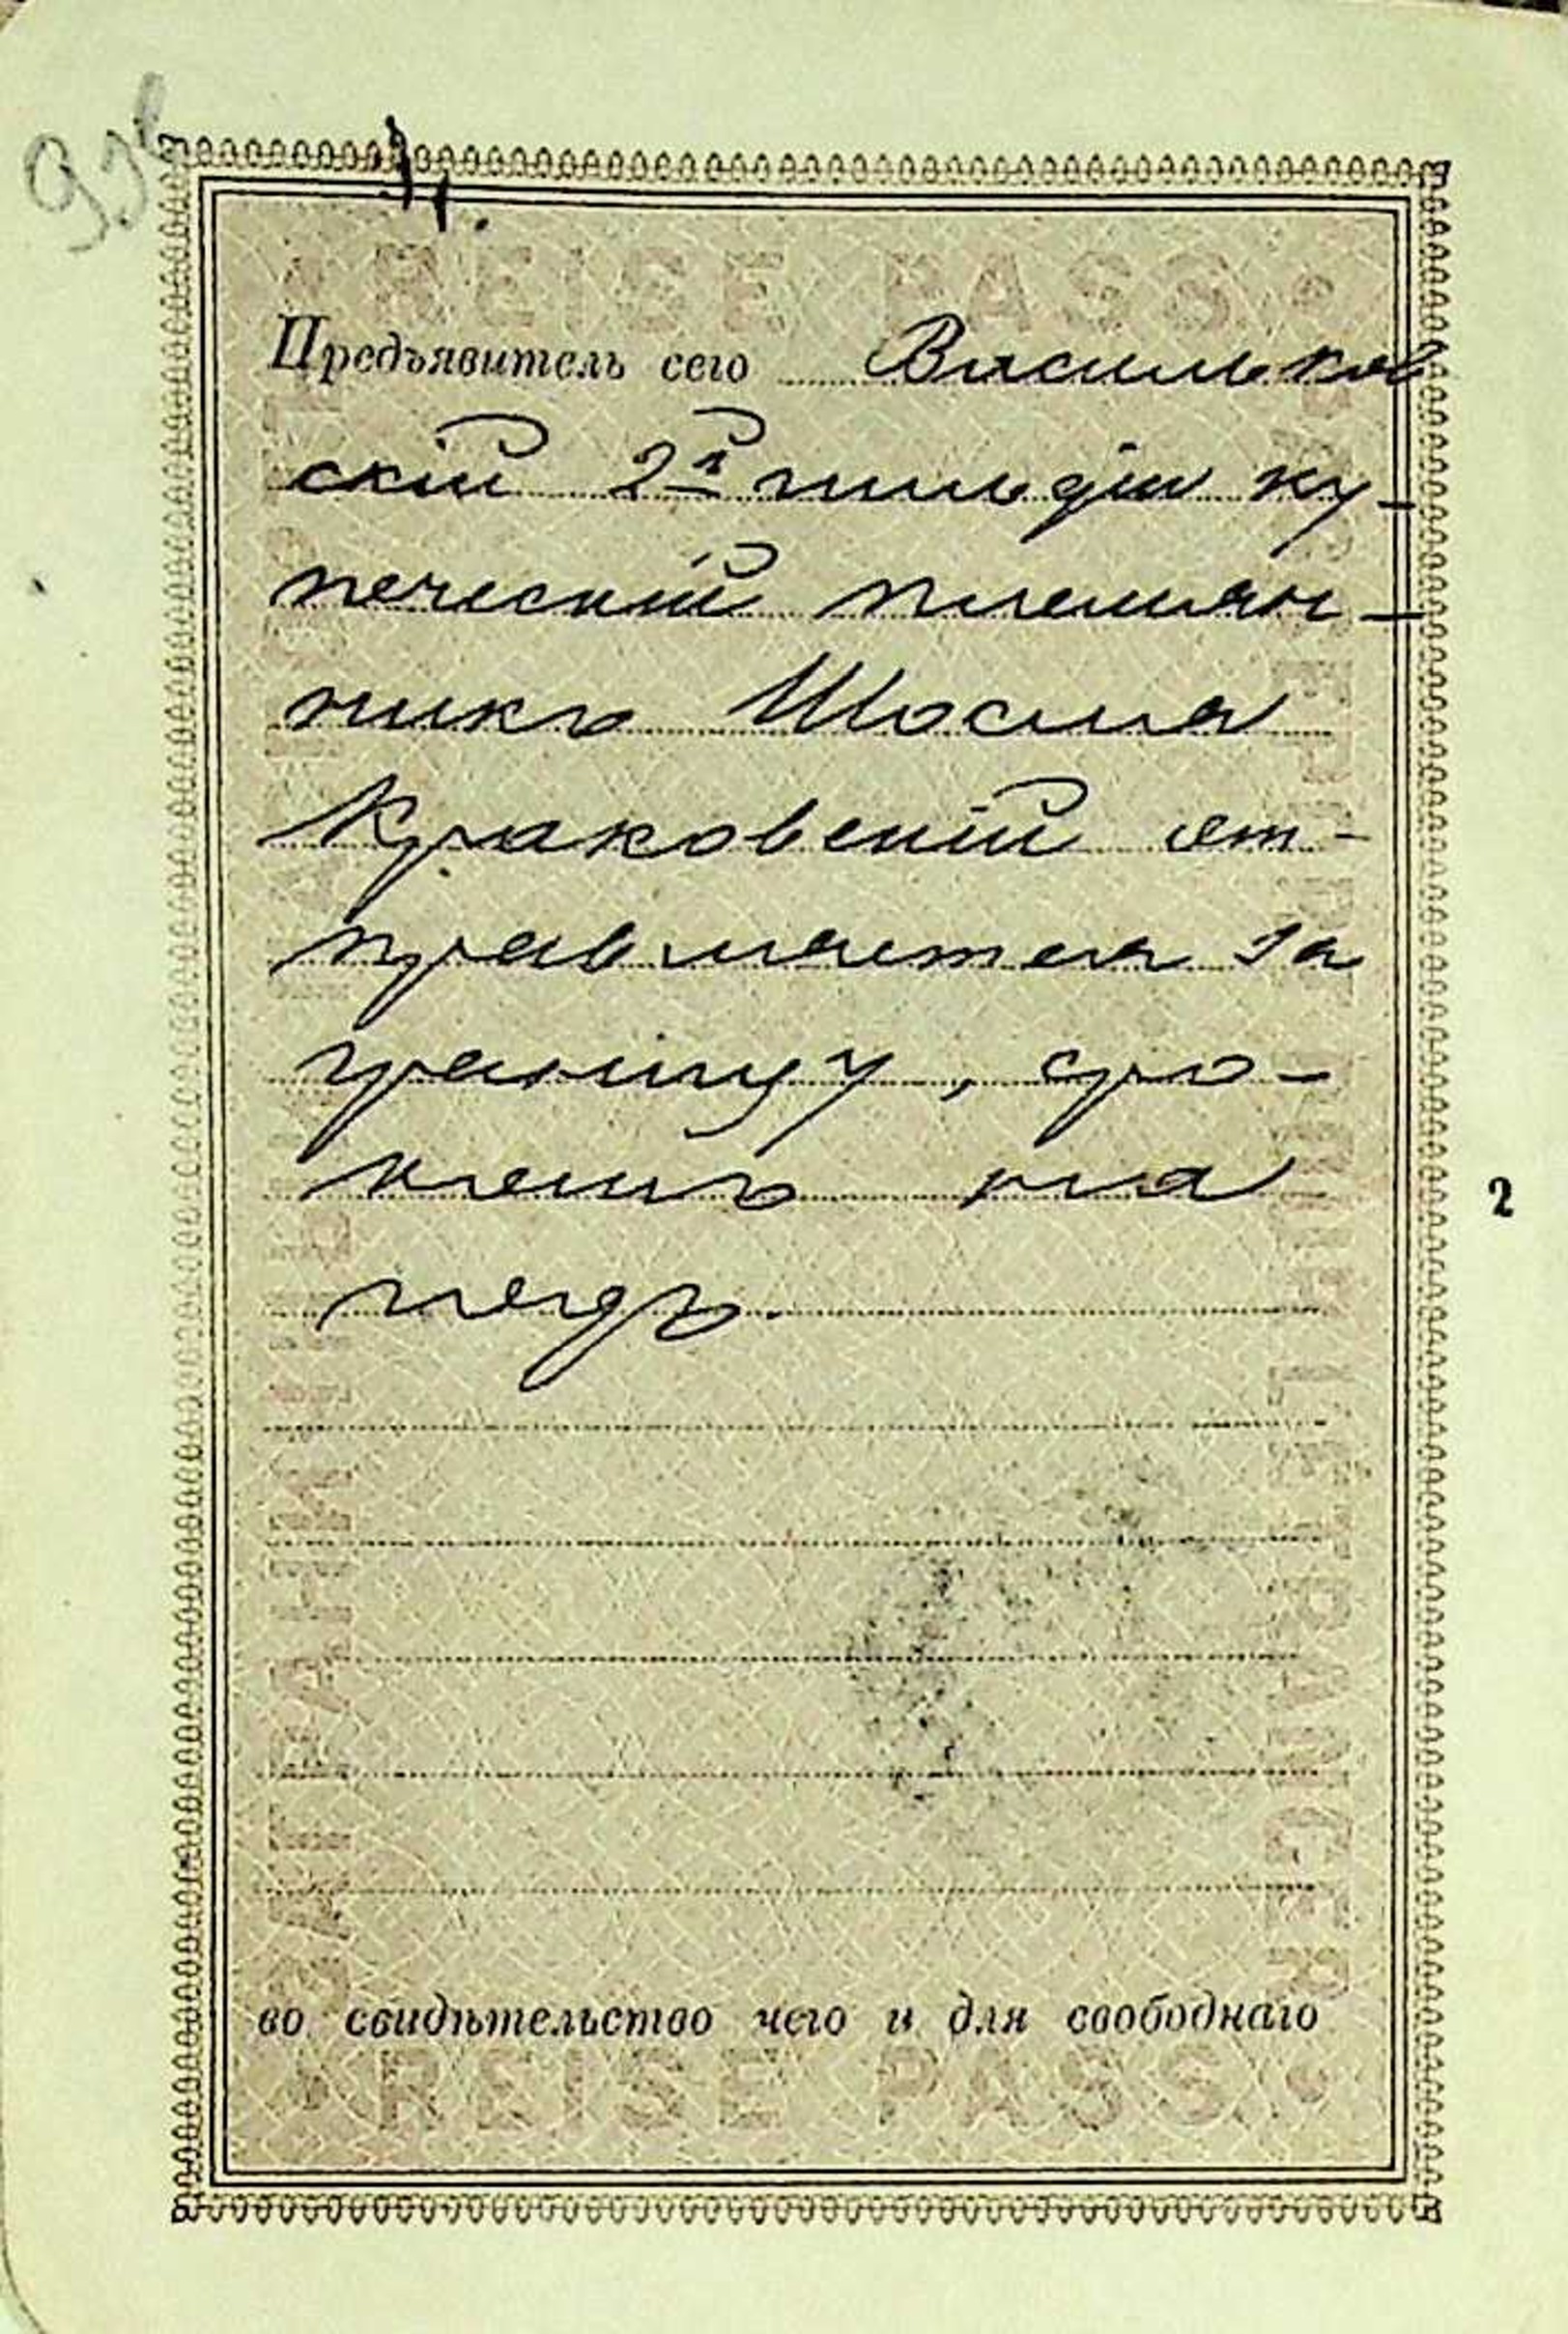 Предъявитель сего Васильков
скій 2й гильдіи ку-
печескій племян-
никъ Шослия
Краковскій от-
правляется за
границу, сро-
комъ на
годъ.
2
во свидѣтельство чего и для свободнаго